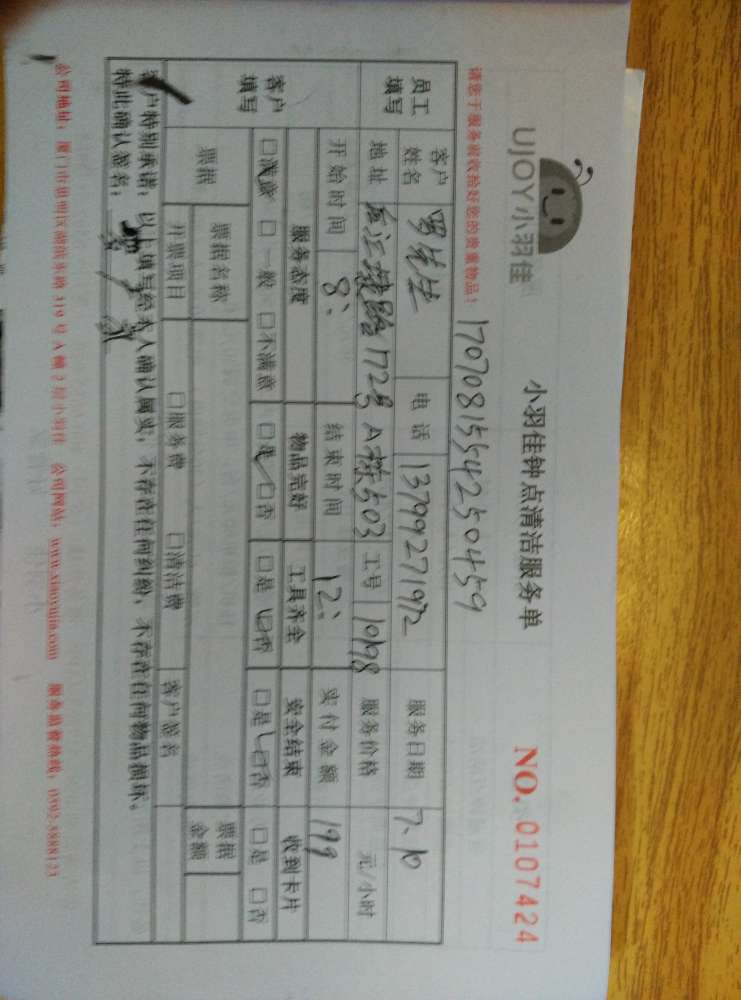 UJOY小羽佳
小羽佳钟点清洁服务单
NO. 0107424
请您于服务前收拾好您的贵重物品!
170708155425 0459
员工填写 客户姓名 罗先生 电话 13799271972 服务日期 7.10
地址 172号A栋503 工号 10198 服务价格 元/小时
开始时间 8: 结束时间 12: 实付金额 199
客户填写 服务态度 物品完好 工具齐全 安全结束 收到卡片
□满意 □一般 □不满意 □是 □否 □是 □否 □是 □否 □是 □否
票据 票据名称 票据金额
开票项目 □服务费 □清洁费 客户签名
客户特别承诺:以上填写经本人确认属实,不存在任何纠纷,不存在任何物品损坏。
特此确认签名:
公司地址:厦门市思明区湖滨东路319号A幢2层小羽佳 公司网站:www.xiaoyujia.com 服务监督热线:0592-5888123